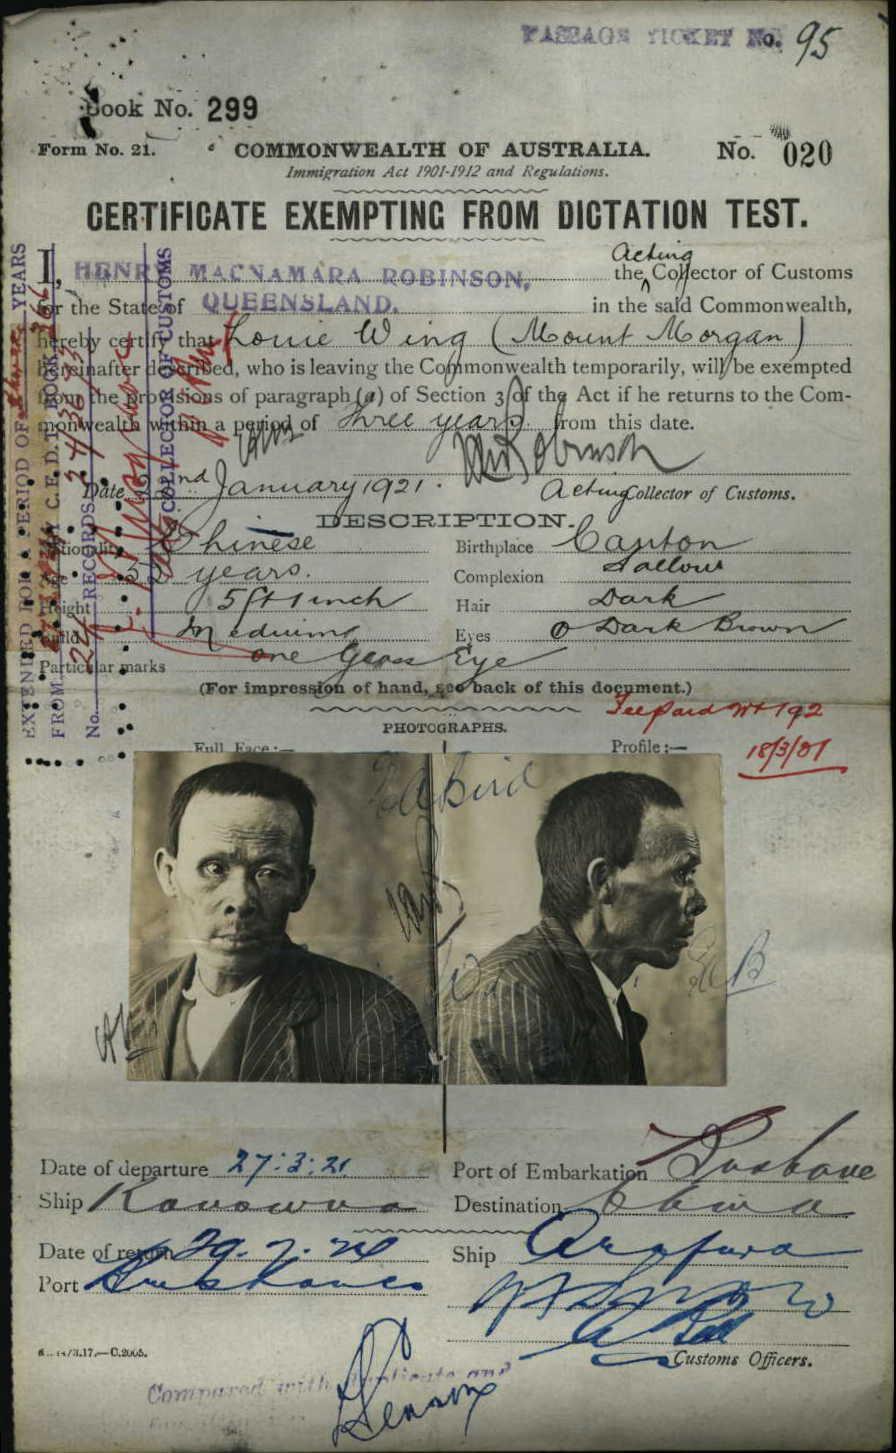 PASSAGE TICKET No. 95
Book No. 299
Form No. 21. COMMONWEALTH OF AUSTRALIA. No. 020
Immigration Act 1901-1912 and Regulations.
CERTIFICATE EXEMPTING FROM DICTATION TEST.
I, HENRY MACNAMARA ROBINSON, the Acting Collector of Customs
for the State of QUEENSLAND. in the said Commonwealth,
hereby certify that Louie Wing (Mount Morgan)
hereinafter described, who is leaving the Commonwealth temporarily, will be exempted
from the provisions of paragraph (a) of Section 3 of the Act if he returns to the Com-
monwealth within a period of three years from this date.
Date 22nd January 1921. Acting Collector of Customs.
DESCRIPTION.
Nationality Chinese Birthplace Canton
Age 52 years. Complexion Sallow
Height 5 ft 1 inch Hair Dark
Build Medium Eyes Dark Brown
Particular marks one Glass Eye
(For impression of hand, see back of this document.)
PHOTOGRAPHS.
Full Face:— Profile:—
18/3/21
EXTENDED FOR A PERIOD OF three YEARS
FROM C.E.D.T. BOOK
No. RECORDS
COLLECTOR OF CUSTOMS
Date of departure 27:3:21 Port of Embarkation Brisbane
Ship Kanowna Destination China
Date of return 29.7.24 Ship Arafura
Port Brisbane
Customs Officers.
C.2005.
Compared with Duplicate and